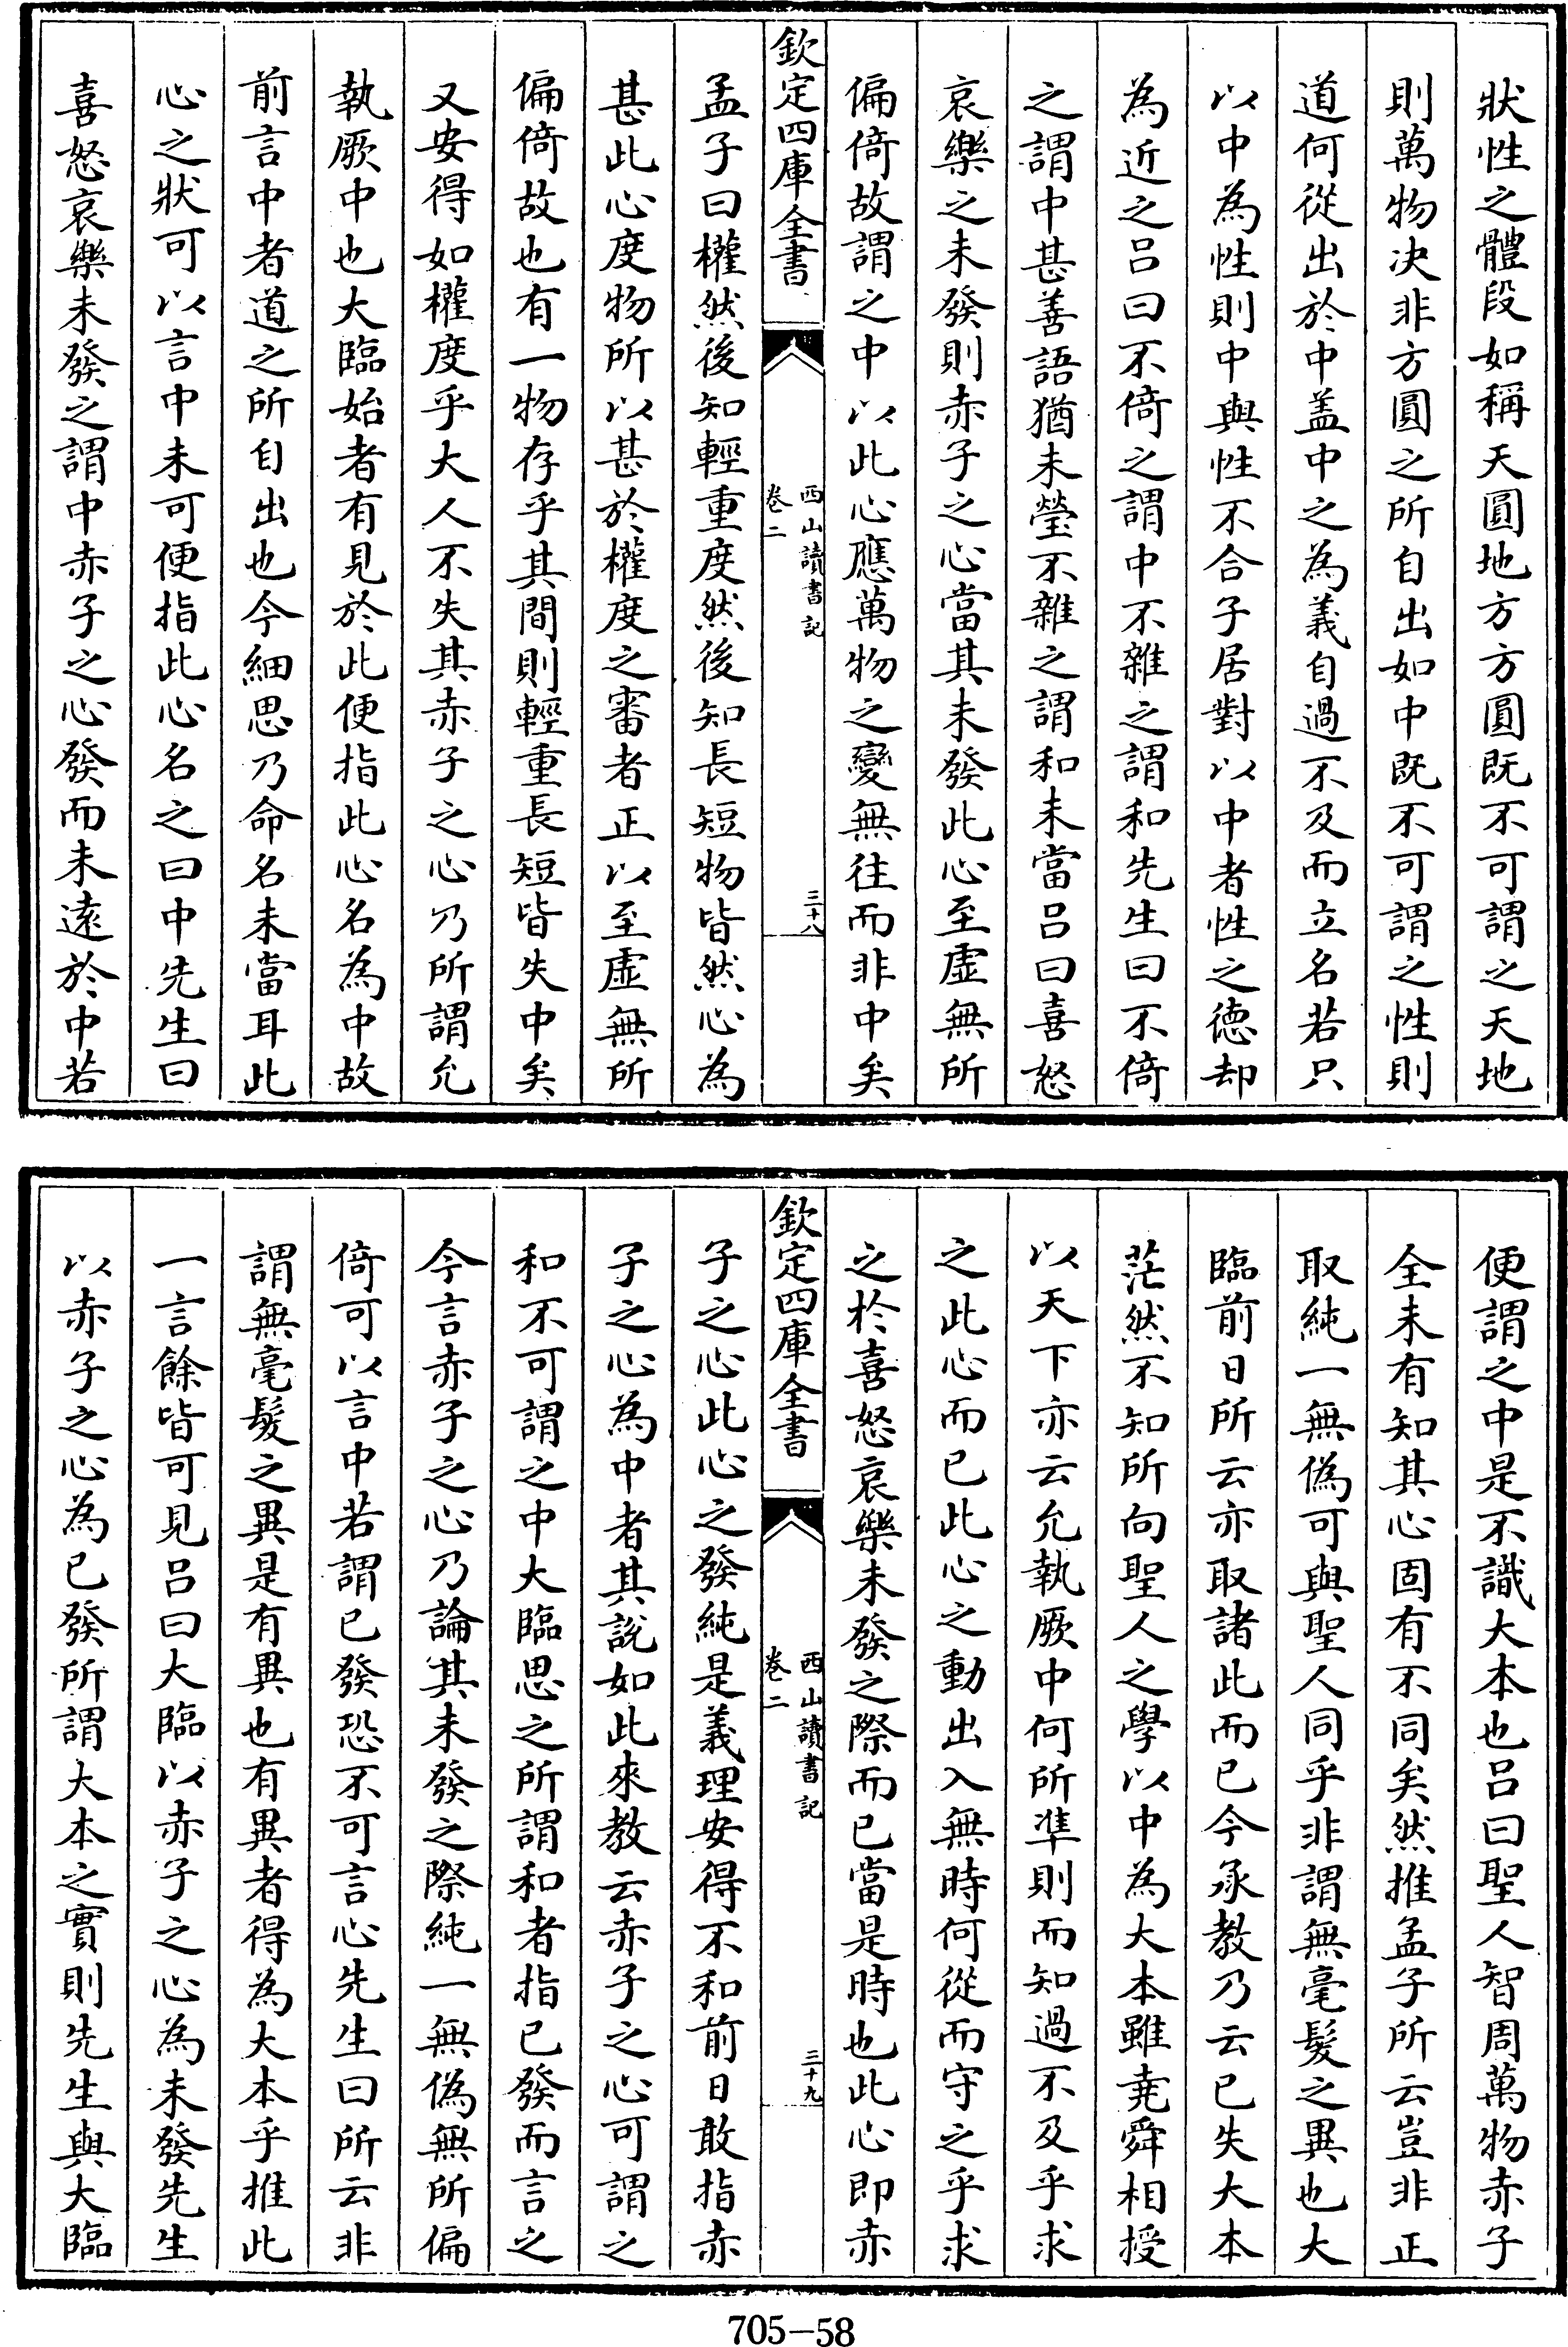 狀性之體段如稱天圓地方方圓既不可謂之天地
則萬物决非方圓之所自出如中既不可謂之性則
道何從出於中盖中之為義自過不及而立名若只
以中為性則中與性不合子居對以中者性之德却
為近之呂曰不倚之謂中不雜之謂和先生曰不倚
之謂中甚善語猶未瑩不雜之謂和未當呂曰喜怒
哀樂之未發則赤子之心當其未發此心至虛無所
偏倚故謂之中以此心應萬物之變無往而非中矣
欽定四庫全書
西山讀書記
卷二
三十八
孟子曰權然後知輕重度然後知長短物皆然心為
甚此心度物所以甚於權度之審者正以至虛無所
偏倚故也有一物存乎其間則輕重長短皆失中矣
又安得如權度乎大人不失其赤子之心乃所謂允
執厥中也大臨始者有見於此便指此心名為中故
前言中者道之所自出也今細思乃命名未當耳此
心之狀可以言中未可便指此心名之曰中先生曰
喜怒哀樂未發之謂中赤子之心發而未遠於中若
便謂之中是不識大本也呂曰聖人智周萬物赤子
全未有知其心固有不同矣然推孟子所云豈非正
取純一無偽可與聖人同乎非謂無毫髮之異也大
臨前日所云亦取諸此而已今承教乃云已失大本
茫然不知所向聖人之學以中為大本雖堯舜相授
以天下亦云允執厥中何所準則而知過不及乎求
之此心而已此心之動出入無時何從而守之乎求
之於喜怒哀樂未發之際而已當是時也此心即赤
欽定四庫全書
西山讀書記
卷二
三十九
子之心此心之發純是義理安得不和前日敢指赤
子之心為中者其說如此來教云赤子之心可謂之
和不可謂之中大臨思之所謂和者指已發而言之
今言赤子之心乃論其未發之際純一無偽無所偏
倚可以言中若謂已發恐不可言心先生曰所云非
謂無毫髮之異是有異也有異者得為大本乎推此
一言餘皆可見呂曰大臨以赤子之心為未發先生
以赤子之心為已發所謂大本之實則先生與大臨
705-58